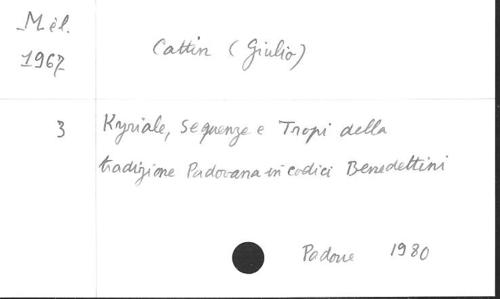 Mél.
1967
Cattin (Giulio)
3
Kyriale, sequenze e Tropi della
tradizione Padovana in codici Benedettini
Padoue 1980